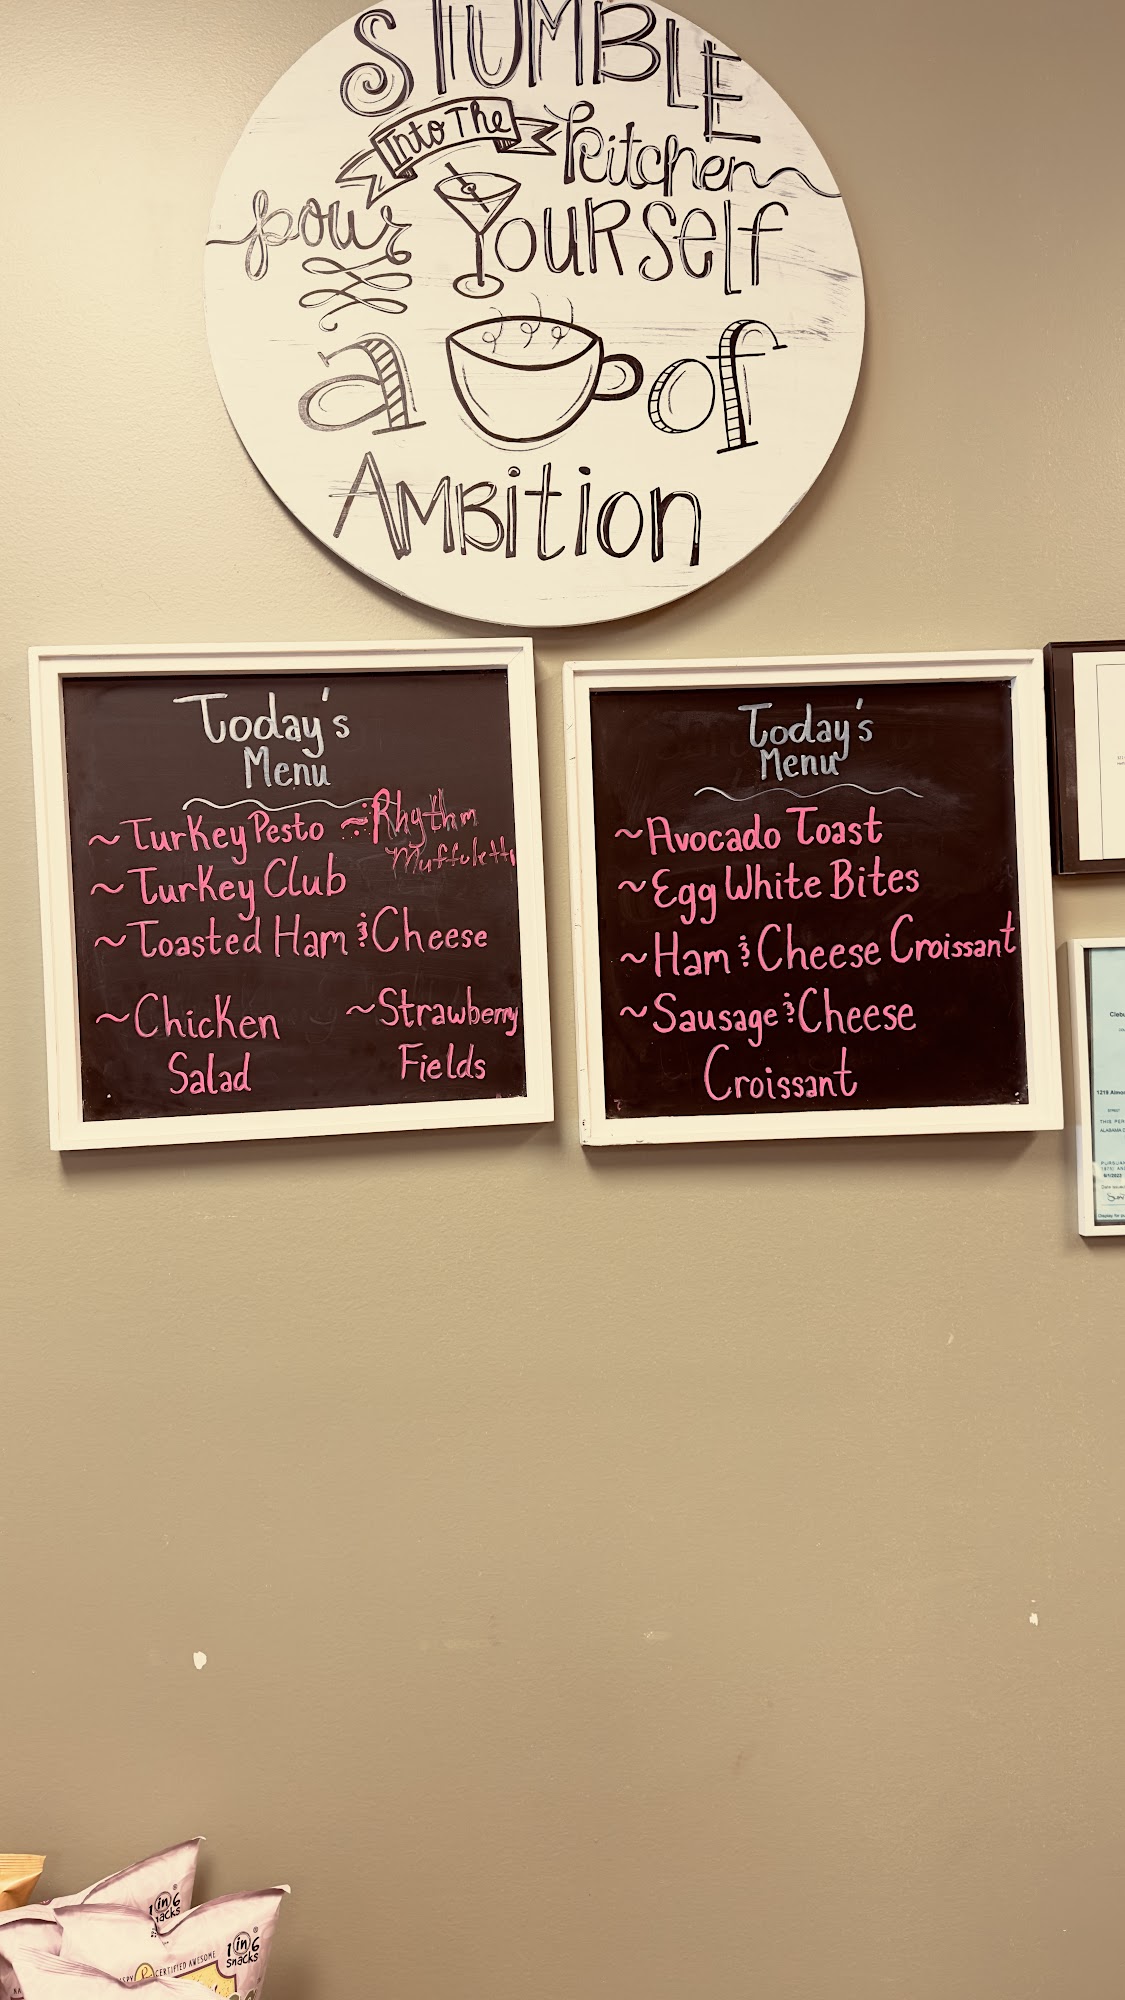 STUMBLE
Into The Kitchen
pour Yourself
a of
AMBition
Today's
Menu
~Turkey Pesto ~Rhythm
Muffuletta
~Turkey Club
~Toasted Ham & Cheese
~Chicken ~Strawberry
Salad Fields
Today's
Menu
~Avocado Toast
~Egg White Bites
~Ham & Cheese Croissant
~Sausage & Cheese
Croissant
THIS PER
PURSUAN
1 in 6
snacks
1 in 6
snacks
CERTIFIED AWESOME